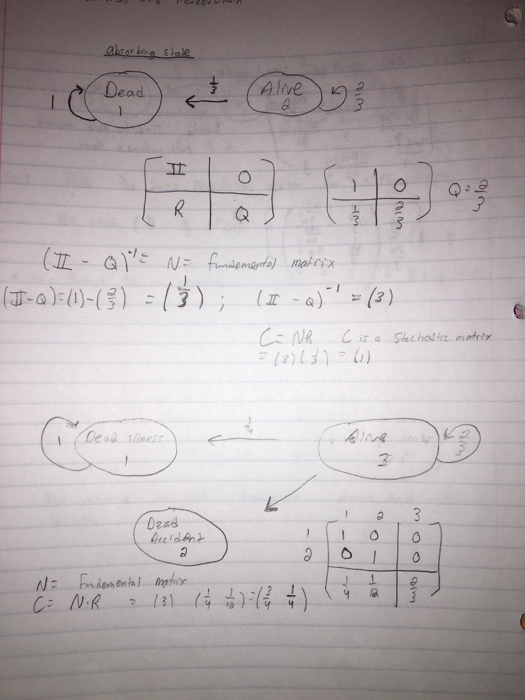 Absorbing State
1 Dead 1 ← 1/3 Alive 2 2/3
[ II | 0 ] [ 1 | 0 ] Q = 2/3
[ R | Q ] [ 1/3 | 2/3 ]
(II - Q)^-1 = N = fundemental matrix
(II-Q)=(1)-(2/3) = (1/3) ; (II - Q)^-1 = (3)
C = NR C is a Stochastic matrix
= (3)(1/3) = (1)
1 Dead illness 1 ← 1/4 Alive 3 2/3
Dead Accident 2
1 2 3
1 [ 1 0 | 0 ]
2 [ 0 1 | 0 ]
[ 1/4 1/12 | 2/3 ]
N = Fundemental matrix
C = N·R = (3) (1/4 1/12) = (3/4 1/4)